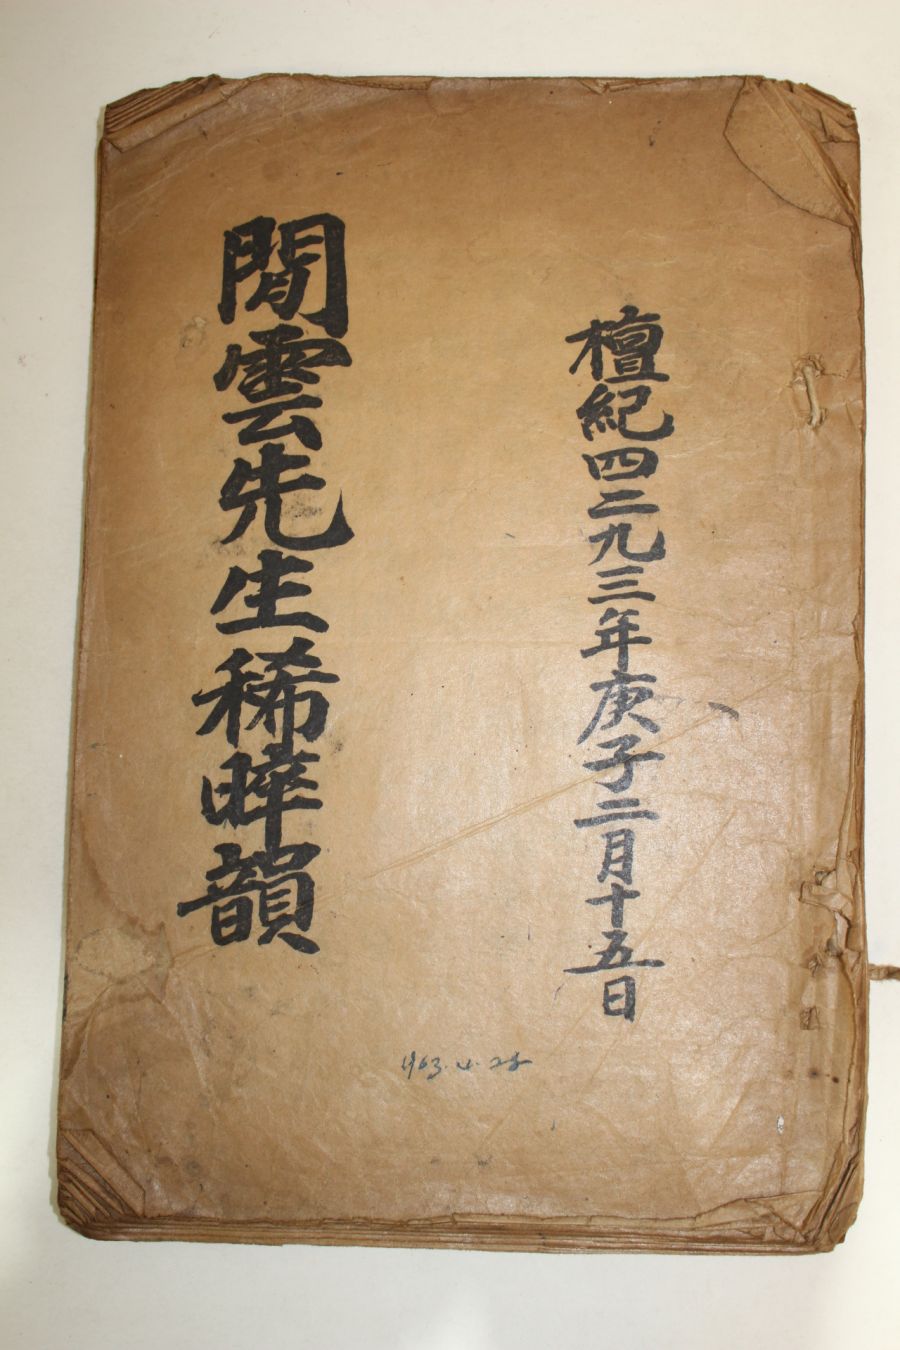 檀紀四二九三年庚子二月十五日
閒雲先生稀晬韻
1963. 4. 25